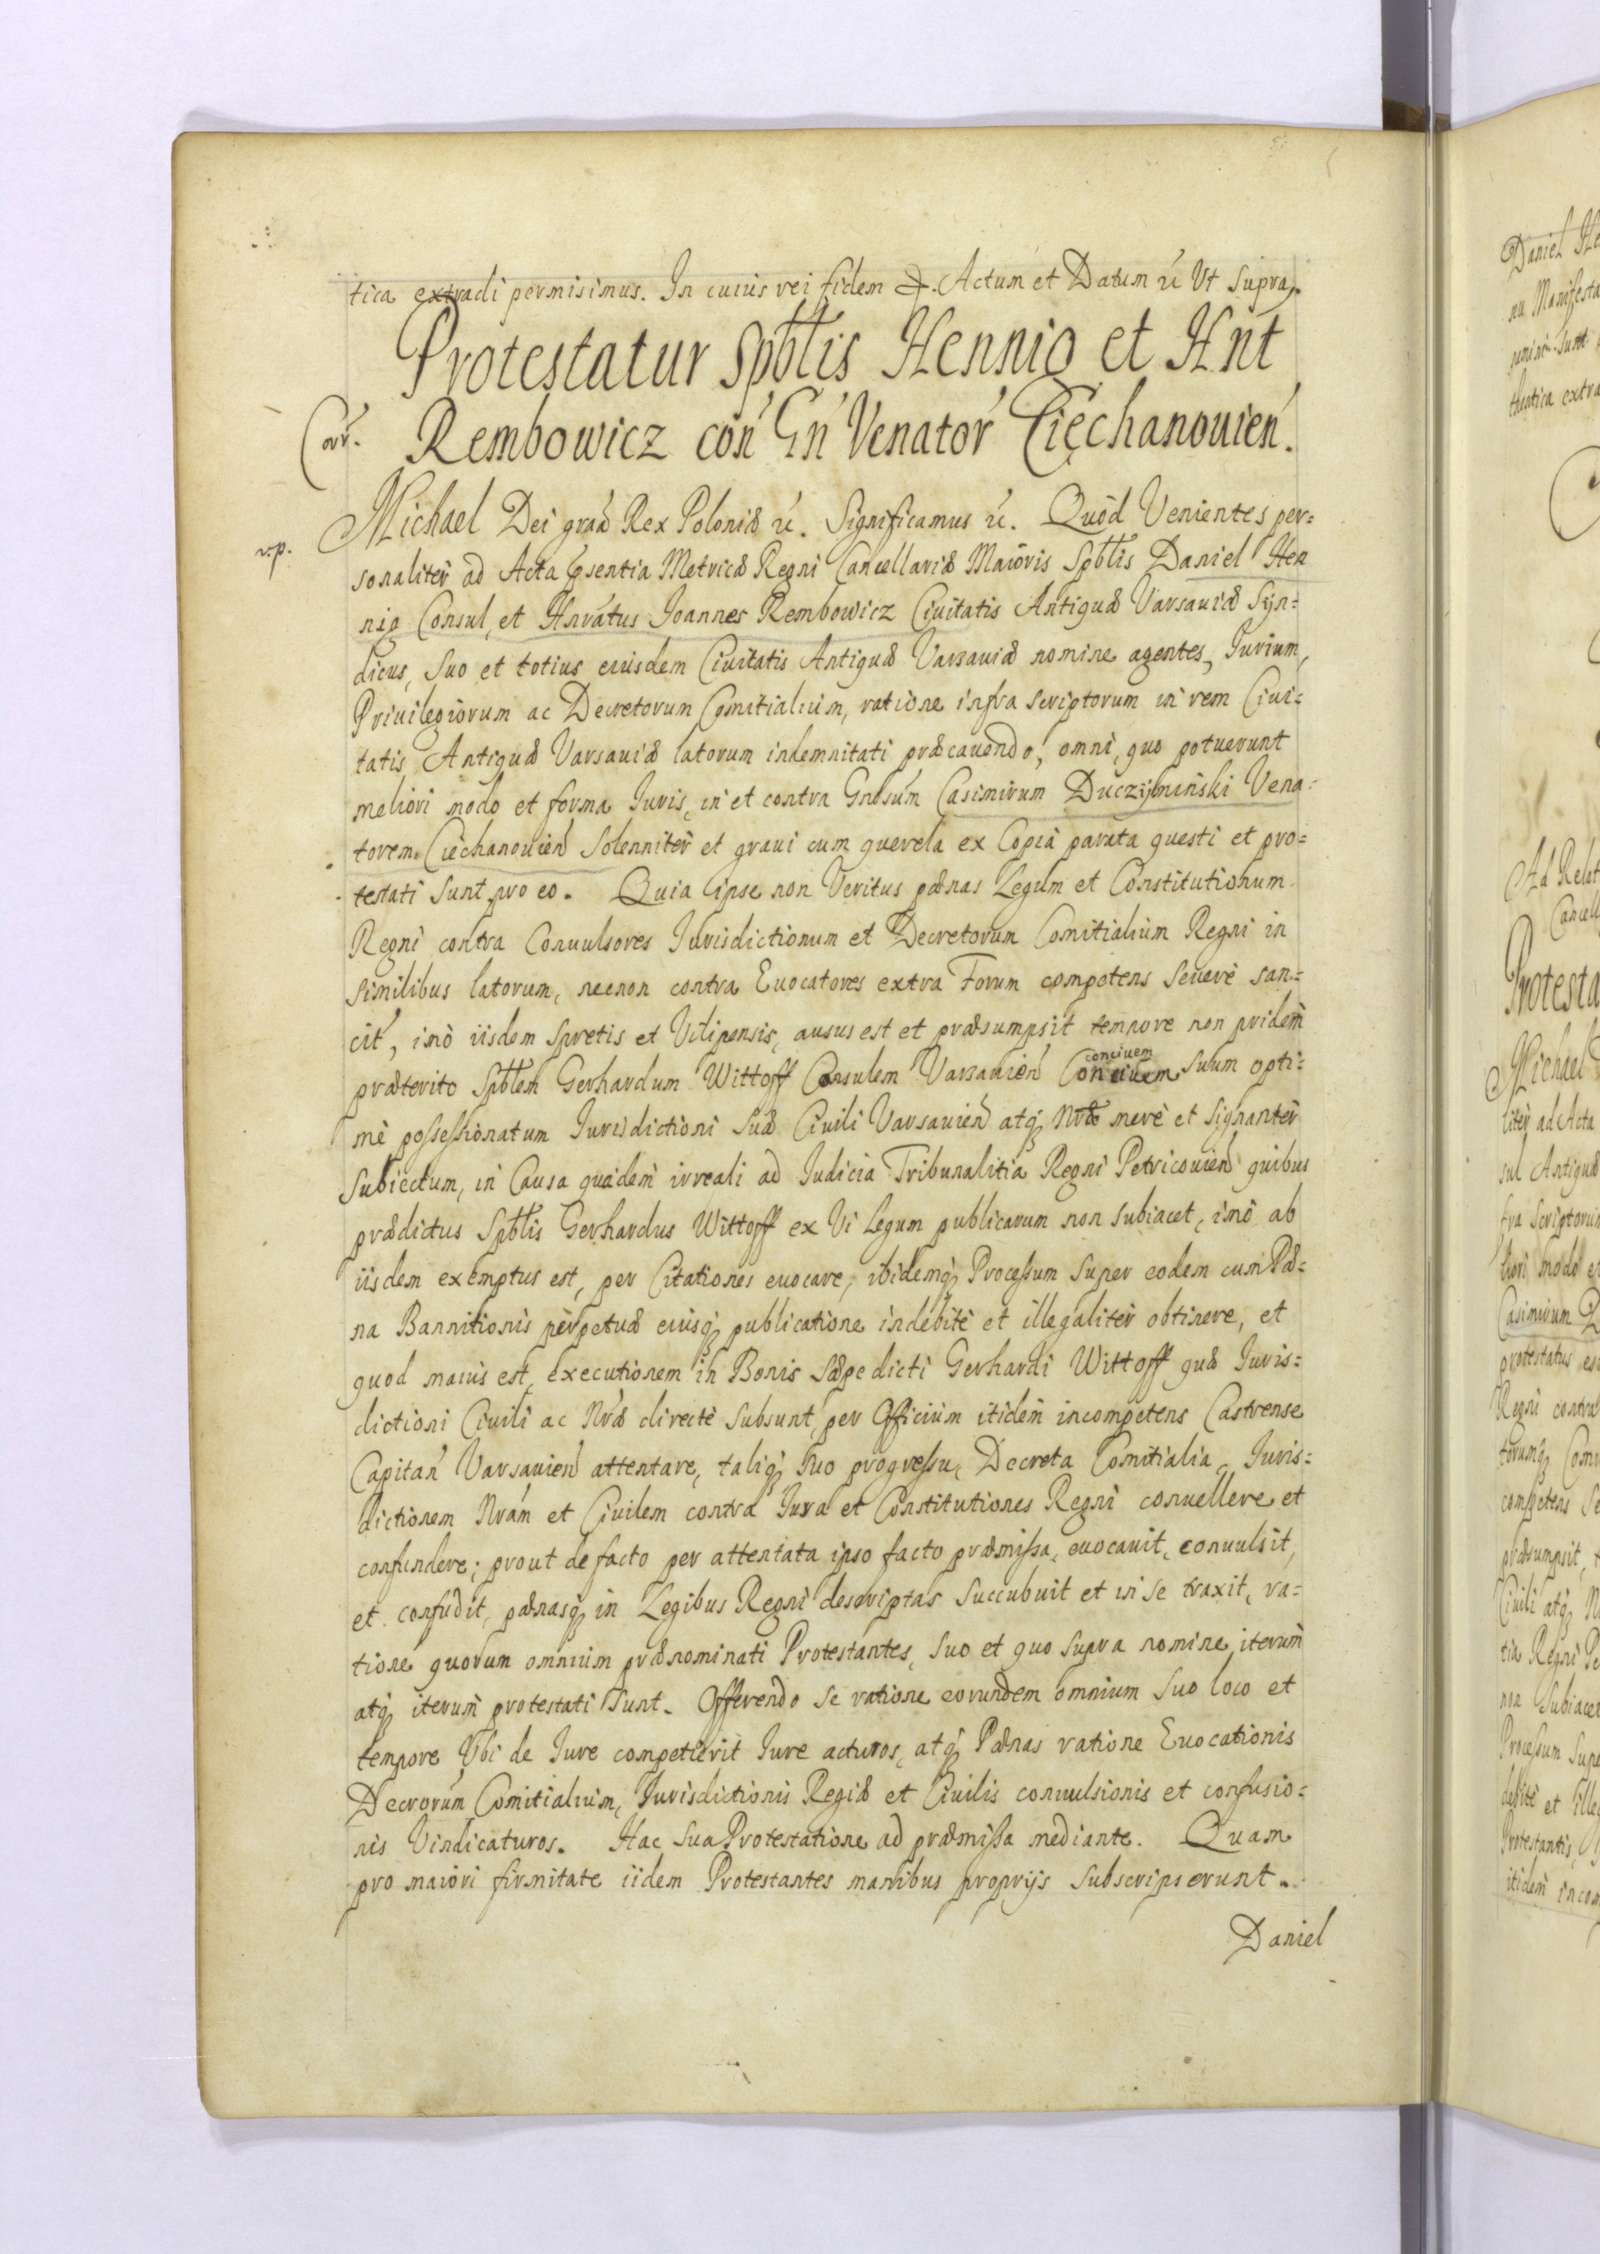 tica extradi permisimus. In cuius rei fidem &. Actum et Datum uć Vt supra.
Protestatur Spblis Hennig et Hnt
Corr. Rembowicz con Gn Venator Ciechanouien.
Michael Dei graa Rex Poloniæ uć. Significamus uć. Quod Venientes per=
v.p.
sonaliter ad Acta psentia Metricæ Regni Cancellariæ Maioris Spblis Daniel Hen
nig Consul, et Hnratus Joannes Rembowicz Ciuitatis Antiquæ Varsauiæ Syn=
dicus, suo et totius eiusdem Ciuitatis Antiquæ Varsauiæ nomine agentes, Jurium,
Priuilegiorum ac Decretorum Comitialium, ratione infra scriptorum in rem Ciui=
tatis Antiquæ Varsauiæ latorum indemnitati præcauendo, omni, quo potuerunt
meliori modo et forma Juris, in et contra Gnosum Casimirum Duczyminski Vena=
torem Ciechanouien Solenniter et graui cum querela ex Copia parata questi et pro=
testati sunt pro eo. Quia ipse non Veritus pænas Legum et Constitutionum
Regni contra Conuulsores Jurisdictionum et Decretorum Comitialium Regni in
similibus latorum, necnon contra Euocatores extra Forum competens seuere san=
cit, imò iisdem spretis et Vilipensis, ausus est et præsumpsit tempore non pridem
præterito Spblem Gerhardum Wittoff Consulem Varsauien Conciuem suum opti=
conciuem
mè possessionatum Jurisdictioni suæ Ciuili Varsauien atq Nræ merè et signanter
subiectum, in Causa quidem irreali ad Judicia Tribunalitia Regni Petricouien quibus
prædictus Spblis Gerhardus Wittoff ex Vi Legum publicarum non subiacet, imò ab
iisdem exemptus est, per Citationes euocare, ibidemq Processum super eodem cum Pæ=
na Bannitionis perpetuæ eiusq publicatione indebitè et illegaliter obtinere, et
quod maius est, executionem in Bonis sæpe dicti Gerhardi Wittoff quæ Juris=
dictioni Ciuili ac Nræ directè subsunt, per Officium itidem incompetens Castrense
Capitan Varsauien attentare, taliq suo progressu, Decreta Comitialia, Juris=
dictionem Nram et Ciuilem contra Jura et Constitutiones Regni conuellere et
confundere; prout de facto per attentata ipso facto præmissa, euocauit, conuulsit,
et confudit, pænasq in Legibus Regni descriptas succubuit et in se traxit, ra=
tione quorum omnium prænominati Protestantes, suo et quo supra nomine, iterum
atq iterum protestati sunt. Offerendo se ratione eorundem omnium suo loco et
tempore Vbi de Jure competierit Jure acturos, atq Pænas ratione Euocationis
Decrorum Comitialium, Jurisdictionis Regiæ et Ciuilis conuulsionis et confusio=
nis Vindicaturos. Hac sua Protestatione ad præmissa mediante. Quam
pro maiori firmitate iidem Protestantes manibus proprijs subscripserunt.
Daniel